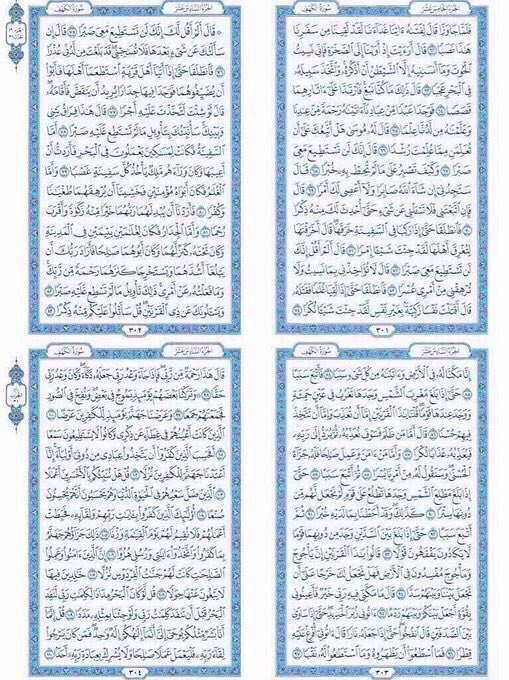 الجزء الخامس عشر
سورة الكهف
فلما جاوزا قال لفتىه ءاتنا غداءنا لقد لقينا من سفرنا
هذا نصبا ٦٢ قال أرءيت إذ أوينا إلى الصخرة فإني نسيت
الحوت وما أنسىنيه إلا الشيطن أن أذكره واتخذ سبيله
في البحر عجبا ٦٣ قال ذلك ما كنا نبغ فارتدا على ءاثارهما
قصصا ٦٤ فوجدا عبدا من عبادنا ءاتينه رحمة من عندنا
وعلمنه من لدنا علما ٦٥ قال له موسى هل أتبعك على أن
تعلمن مما علمت رشدا ٦٦ قال إنك لن تستطيع معي
صبرا ٦٧ وكيف تصبر على ما لم تحط به خبرا ٦٨ قال
ستجدني إن شاء الله صابرا ولا أعصي لك أمرا ٦٩ قال
فإن اتبعتني فلا تسءلني عن شيء حتى أحدث لك منه ذكرا
٧٠ فانطلقا حتى إذا ركبا في السفينة خرقها قال أخرقتها
لتغرق أهلها لقد جئت شيءا إمرا ٧١ قال ألم أقل إنك
لن تستطيع معي صبرا ٧٢ قال لا تؤاخذني بما نسيت ولا
ترهقني من أمري عسرا ٧٣ فانطلقا حتى إذا لقيا غلما فقتله
قال أقتلت نفسا زكية بغير نفس لقد جئت شيءا نكرا ٧٤
٣٠١
الجزء السادس عشر
سورة الكهف
قال ألم أقل لك إنك لن تستطيع معي صبرا ٧٥ قال إن
سألتك عن شيء بعدها فلا تصحبني قد بلغت من لدني عذرا
٧٦ فانطلقا حتى إذا أتيا أهل قرية استطعما أهلها فأبوا
أن يضيفوهما فوجدا فيها جدارا يريد أن ينقض فأقامه
قال لو شئت لتخذت عليه أجرا ٧٧ قال هذا فراق بيني
وبينك سأنبئك بتأويل ما لم تستطع عليه صبرا ٧٨ أما
السفينة فكانت لمسكين يعملون في البحر فأردت أن
أعيبها وكان وراءهم ملك يأخذ كل سفينة غصبا ٧٩ وأما
الغلم فكان أبواه مؤمنين فخشينا أن يرهقهما طغينا
وكفرا ٨٠ فأردنا أن يبدلهما ربهما خيرا منه زكوة وأقرب
رحما ٨١ وأما الجدار فكان لغلمين يتيمين في المدينة
وكان تحته كنز لهما وكان أبوهما صلحا فأراد ربك أن
يبلغا أشدهما ويستخرجا كنزهما رحمة من ربك
وما فعلته عن أمري ذلك تأويل ما لم تسطع عليه صبرا ٨٢
ويسءلونك عن ذي القرنين قل سأتلوا عليكم منه ذكرا ٨٣
٣٠٢
الجزء السادس عشر
سورة الكهف
إنا مكنا له في الأرض وءاتينه من كل شيء سببا ٨٤ فأتبع سببا
٨٥ حتى إذا بلغ مغرب الشمس وجدها تغرب في عين حمئة
ووجد عندها قوما قلنا يذا القرنين إما أن تعذب وإما أن تتخذ
فيهم حسنا ٨٦ قال أما من ظلم فسوف نعذبه ثم يرد إلى ربه
فيعذبه عذابا نكرا ٨٧ وأما من ءامن وعمل صلحا فله جزاء
الحسنى وسنقول له من أمرنا يسرا ٨٨ ثم أتبع سببا ٨٩ حتى
إذا بلغ مطلع الشمس وجدها تطلع على قوم لم نجعل لهم من
دونها سترا ٩٠ كذلك وقد أحطنا بما لديه خبرا ٩١ ثم
أتبع سببا ٩٢ حتى إذا بلغ بين السدين وجد من دونهما قوما
لا يكادون يفقهون قولا ٩٣ قالوا يذا القرنين إن يأجوج
ومأجوج مفسدون في الأرض فهل نجعل لك خرجا على أن
تجعل بيننا وبينهم سدا ٩٤ قال ما مكني فيه ربي خير فأعينوني
بقوة أجعل بينكم وبينهم ردما ٩٥ ءاتوني زبر الحديد حتى إذا ساوى
بين الصدفين قال انفخوا حتى إذا جعله نارا قال ءاتوني أفرغ عليه
قطرا ٩٦ فما اسطعوا أن يظهروه وما استطعوا له نقبا ٩٧
٣٠٣
الجزء السادس عشر
سورة الكهف
قال هذا رحمة من ربي فإذا جاء وعد ربي جعله دكاء وكان وعد ربي
حقا ٩٨ وتركنا بعضهم يومئذ يموج في بعض ونفخ في الصور
فجمعنهم جمعا ٩٩ وعرضنا جهنم يومئذ للكفرين عرضا ١٠٠
الذين كانت أعينهم في غطاء عن ذكري وكانوا لا يستطيعون سمعا
١٠١ أفحسب الذين كفروا أن يتخذوا عبادي من دوني أولياء إنا
أعتدنا جهنم للكفرين نزلا ١٠٢ قل هل ننبئكم بالأخسرين أعملا
١٠٣ الذين ضل سعيهم في الحيوة الدنيا وهم يحسبون أنهم يحسنون
صنعا ١٠٤ أولئك الذين كفروا بءايت ربهم ولقائه فحبطت
أعملهم فلا نقيم لهم يوم القيمة وزنا ١٠٥ ذلك جزاؤهم جهنم
بما كفروا واتخذوا ءايتي ورسلي هزوا ١٠٦ إن الذين ءامنوا وعملوا
الصلحت كانت لهم جنت الفردوس نزلا ١٠٧ خلدين فيها
لا يبغون عنها حولا ١٠٨ قل لو كان البحر مدادا لكلمت ربي لنفد
البحر قبل أن تنفد كلمت ربي ولو جئنا بمثله مددا ١٠٩ قل إنما
أنا بشر مثلكم يوحى إلي أنما إلهكم إله وحد فمن كان يرجوا
لقاء ربه فليعمل عملا صلحا ولا يشرك بعبادة ربه أحدا ١١٠
٣٠٤